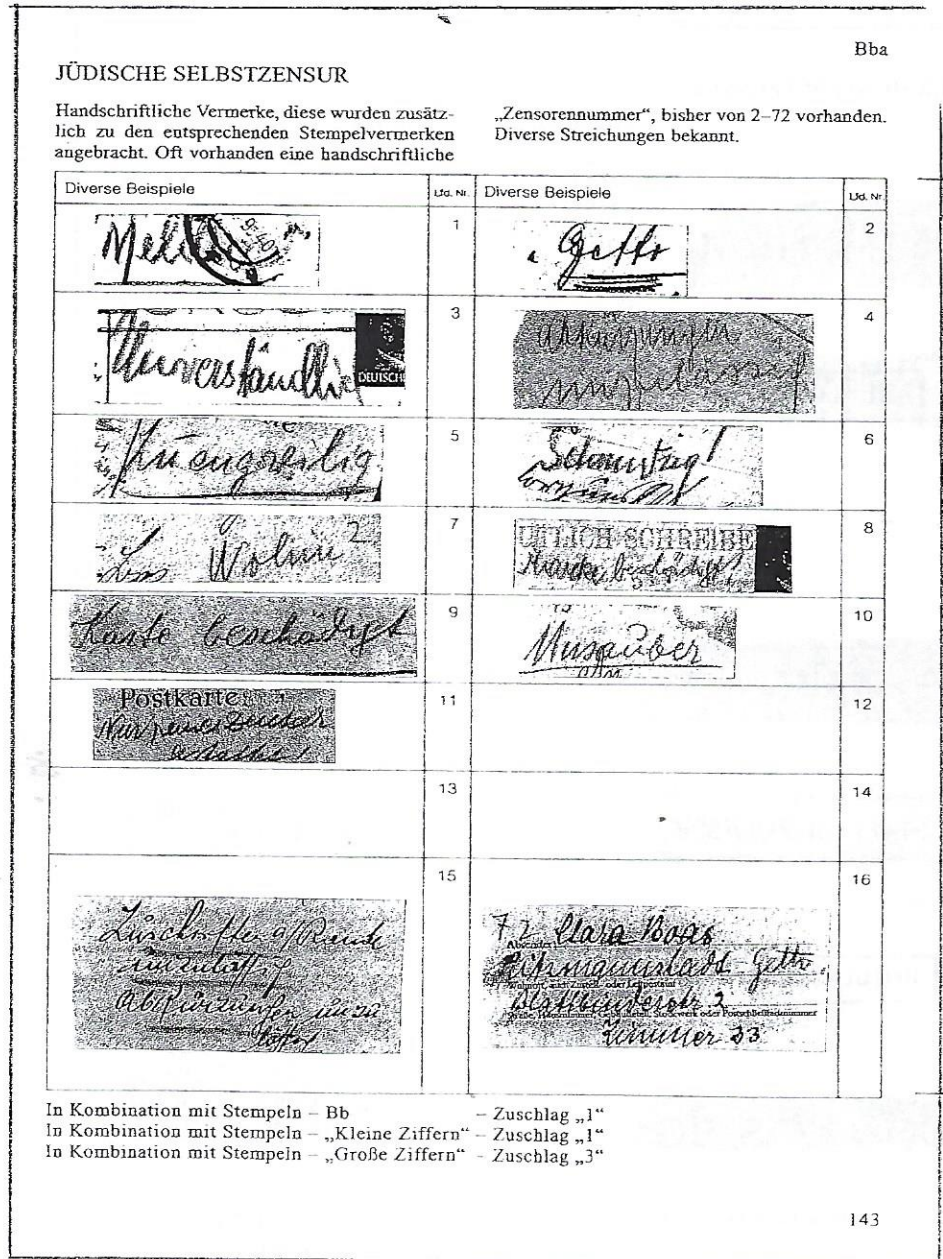 Bba
JÜDISCHE SELBSTZENSUR
Handschriftliche Vermerke, diese wurden zusätz-
lich zu den entsprechenden Stempelvermerken
angebracht. Oft vorhanden eine handschriftliche
„Zensorennummer“, bisher von 2–72 vorhanden.
Diverse Streichungen bekannt.
Diverse Beispiele Lfd. Nr. Diverse Beispiele Lfd. Nr
1
9.40
Getto 2
Unverständlich DEUTSCH 3
4
zu engzeilig 5
Schmutzig! 6
7
UTLICH SCHREIBE
Marke beschädigt! 8
Karte beschädigt 9
Unsauber 10
Postkarte
Nur 11
12
13
14
Zuschriften a/Rande
unzulässig
Abkürzungen unzu
15
72 Clara Boas
Absender:
Litzmannstadt-Getto
Wohnort, auch Zustell- oder Leitpostamt
2
Straße, Hausnummer, Gebäudeteil, Stockwerk oder Postschließfachnummer
Zimmer 33
16
In Kombination mit Stempeln – Bb – Zuschlag „1“
In Kombination mit Stempeln – „Kleine Ziffern“ – Zuschlag „1“
In Kombination mit Stempeln – „Große Ziffern“ – Zuschlag „3“
143